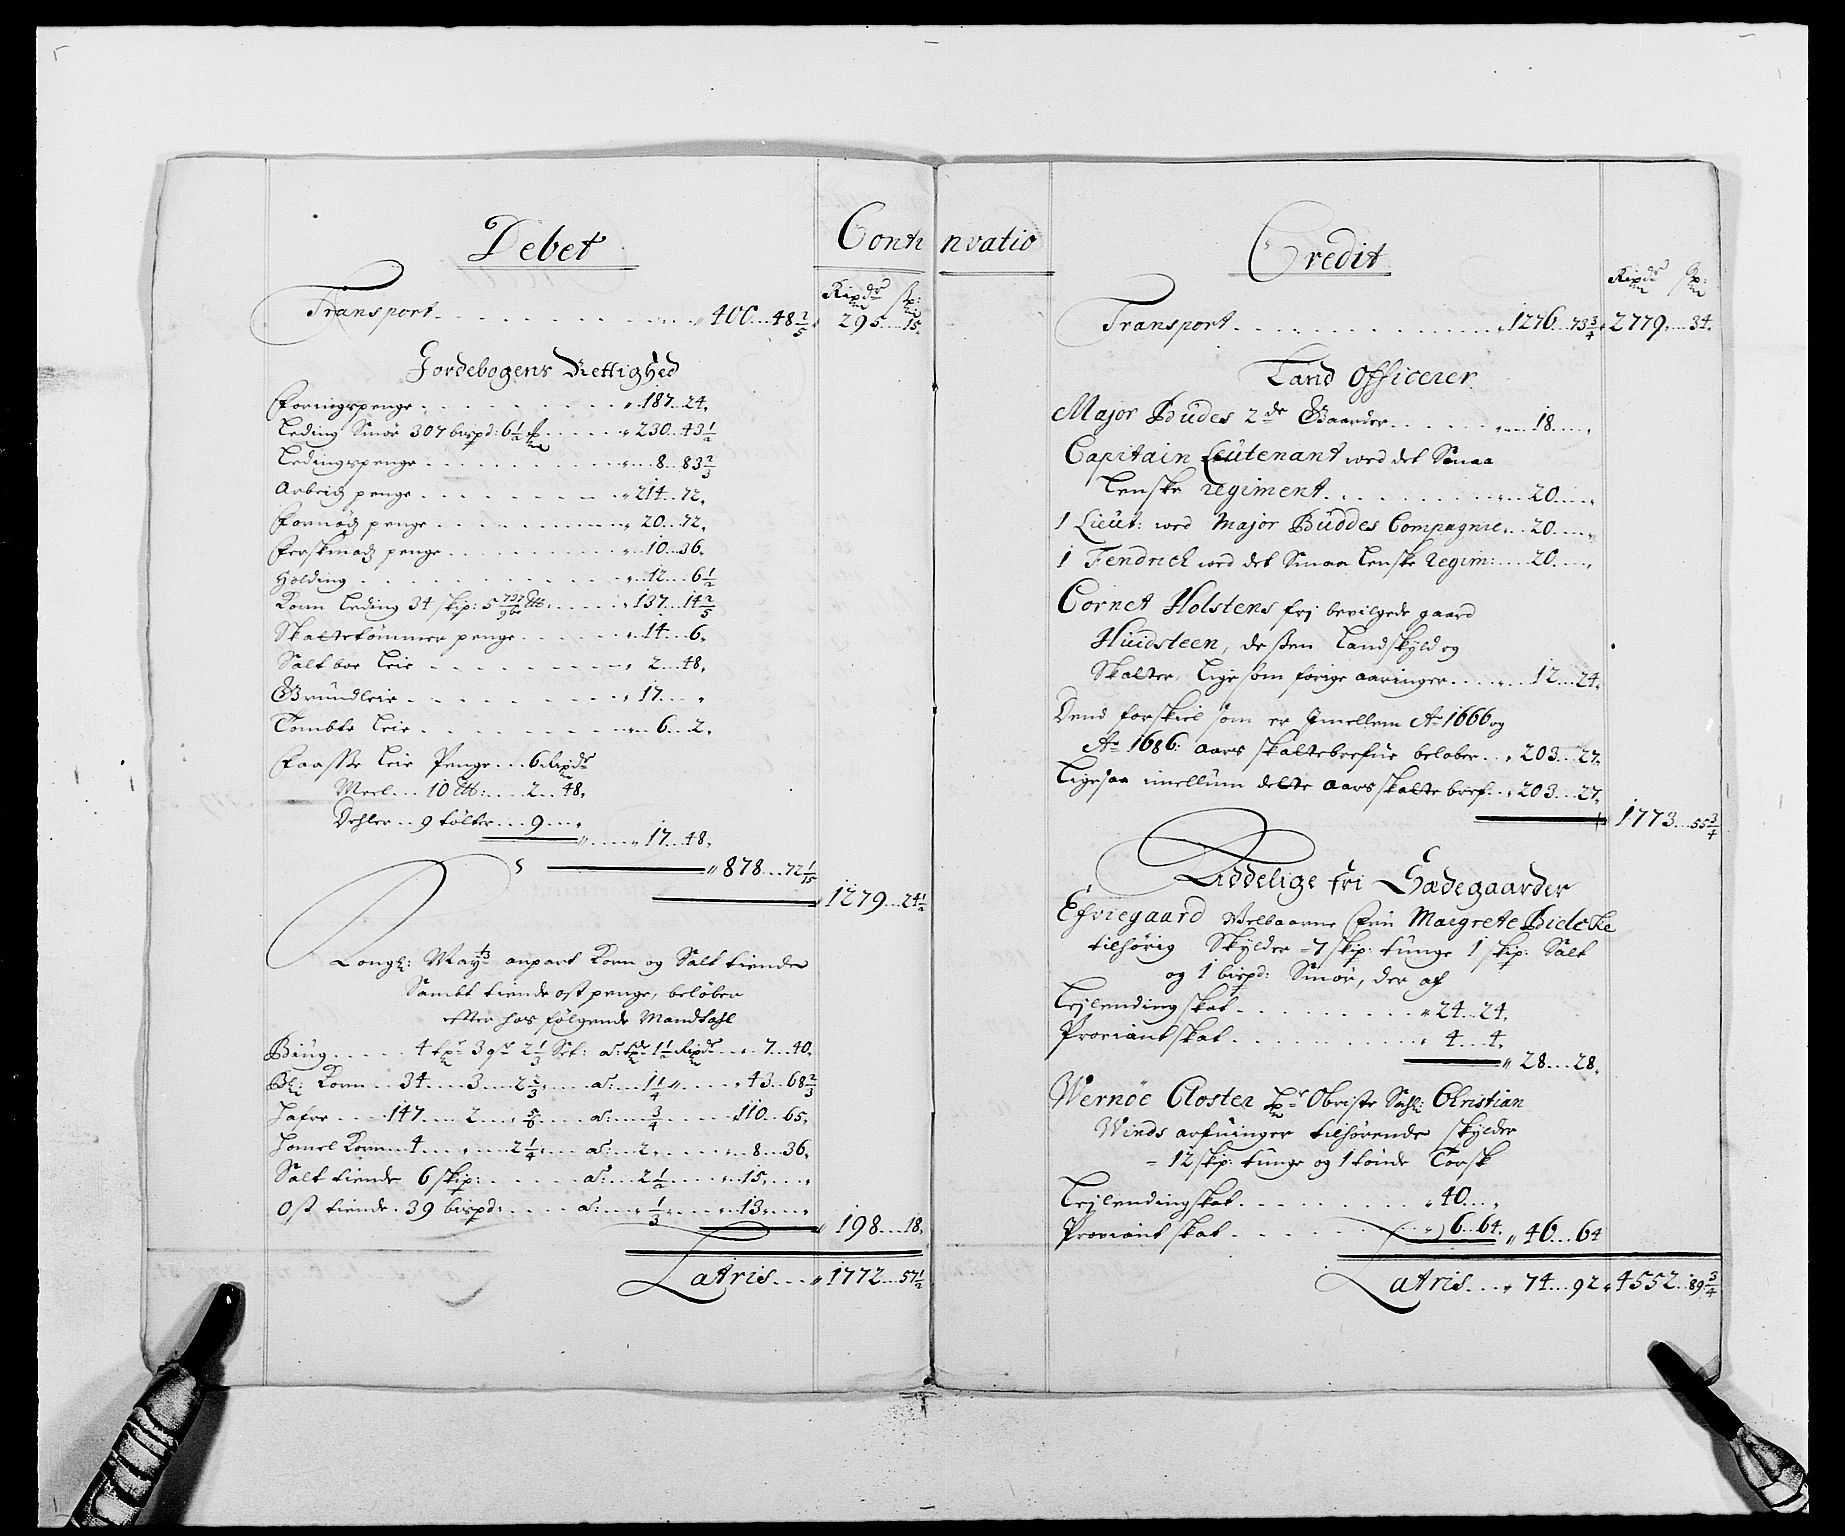 Debet
Continvatio
Rixdr sk:
Transport . . . . . . . . . . 400 . . . 48 2/5 " 295 . . . 15,
Jordebogens Rettighed
Foringspenge . . . . . . . . . . " 187 . . 24,
Leding Smör 307 bispd: 6 1/2 . . . . . " 230 . . 43 1/2
Ledingspenge . . . . . . . . . . " 8 . . 83 2/3
Arbeidz penge . . . . . . . . . . " 214 . . 72,
Fornödz penge . . . . . . . . . . " 20 . . 72,
Ferskmadz penge . . . . . . . . . . " 10 . . 36,
Holding . . . . . . . . . . " 12 . . . 6 1/2
Korn Leding 34 skip: 5 . . . . . " 137 . . 14 2/5
Skattetömmer penge . . . . . . " 14 . . . 6,
Salt boe Leie . . . . . . . . " 2 . . . 48,
Grundleie . . . . . . . . " 17 . . . "
Tombte Leie . . . . . . . . " 6 . . . 2,
Faasste Leie Penge . . . 6 Rixdr
Meel . . . 10 . . . 2 . . 48,
Dehler . . 9 tölter . . . 9 . . "
" . . . . " 17 . . 48,
" 878 . . . 72 1/15
" 1279 . . . 24 1/2
Kongl: May: 1/3 anpart Korn og Salt tiende
Sambt tiende ost penge, beløber
efter hos følgende Mandtahl
Biug . . . . . 4 3 2 1/3 Set: a: 1 1/2 Rixdr . . " 7 . . 40,
Bl: Korn . . 34 . . . . 3 . . . . 2 2/3 . . . . a: . . . 1 1/4 " . . . . " 43 . . 68 2/3
Hafre . . . . 147 . . . . 2 . . . 5/6 . . . . a: . . . 3/4 . . . . . 110 . . 65,
Homel Korn . . 4 . . . " . . . . 2 1/4 . . . . a: . . . 2 . . . . . " 8 . . . 36,
Salt tiende 6 skip: . . . . . . a: . . . 2 1/2 . . . . " 15 . . . "
Ost tiende . 39 bispd: . . . . . a: . . " 1/3 . . . . " 13 . . . "
" 198 . . . 18,
Latris . . . " 1772 . . . 57 1/2
Credit
Rixdr sk:
Transport . . . . . . . . . . " 1276 . . . 73 3/4 " 2779 . . . . 34,
Land Officerer
Major Budes 2de Gaarder . . . . . . . 18 . . . . "
Capitain Leutenant wed det Smaa
Lenske Regiment . . . . . . . . . 20 . . . . "
1 Lieut: wed Major Buddes Compagnie . . . 20 . . . . "
1 Fendrich wed det Smaa Lenske Regim: . . . 20 . . . . "
Cornet Holstens frj bevilgede gaard
Huidsteen, deßen Landskyld og
Skatter, Ligesom forige aaringer . . . . . 12 . . . 24,
Dend forskiel som er Imellem Ao 1666 og
Ao 1686: aars skattebrefue beløber . . " 203 . . . 27,
Ligesaa imellum dette aars skatte bref . . " 203 . . . 27,
" 1773 . . . 55 3/4
Addelige fri Sædegaarder
Efviegaard Welbaarne Fru Margrete Bielcke
tilhörig Skylder = 7 skip: tunge 1 skip: Salt
og 1 bispd: Smör, der af
Lejlending skat . . . . . . . . " 24 . . 24,
Proviant skat . . . . . . . . " 4 . . . 4,
" 28 . . . 28,
Wernöe Closter Obriste Sahl: Christian
Winds arfuinger tilhörende skylder
= 12 skip: tunge og 1 tönde Torsk
Lejlending skat . . . . . . . . " 40 . . . "
Proviant skat . . . . . . . . " 6 . . 64, " 46 . . . 64
Latris . . . . " 74 . . . 92 " 4552 . . 89 3/4